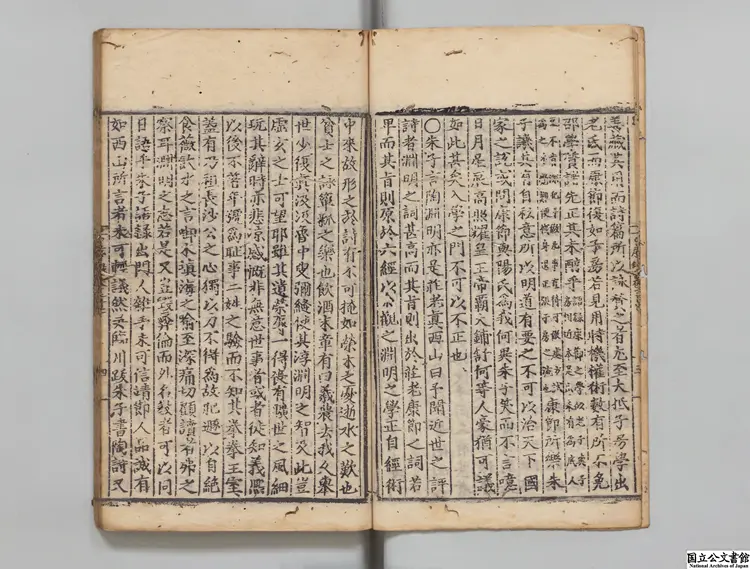 善藏其用而詩篇所以詠贊之者尤至大抵子房學出
老氏而康節復如 若見用時機權術數有所不免
邵學貴請先正其未醇乎
康節所樂朱
子譏其自私意所以明道有要之不可以治天下國
家之說或問康節與楊氏為我何異朱子笑而不言噫
日月星辰高照耀皇王帝霸大鋪舒何等人豪猶可議
如此其矣入學之門不可以不正也
○朱子言陶淵明亦是莊老真西山曰予聞近世之評
詩者淵明之詞甚高而其旨則出於莊老康節之詞若
卑而其旨則原於六經以余觀之淵明之學正自經術
中來故形之於詩有不可掩如榮木之憂逝水之歎也
貧士之詠簞瓢之樂也飲酒末章有曰羲農去我久舉
世少復真汲汲魯中叟彌縫使其淳淵明之智及此豈
虛玄之士可望耶雖其遺榮辱一得喪有曠世之風細
玩其辭時亦悲涼感慨非無意世事者或者徒知義熙
以後不著年號為恥事二姓之驗而不知其拳拳王室
蓋有乃祖長沙公之心獨以力不得為故肥遯以自絕
食薇飲水之言啣木填海之喻至深痛切顧讀者弗之
察耳淵明之志若是又豈毀彝倫而外名教者可以同
日語乎朱子語錄出門人雜手未可信靖節人品誠有
如西山所言者未可輕議然吳臨川跋朱子書陶詩又
国立公文書館
National Archives of Japan